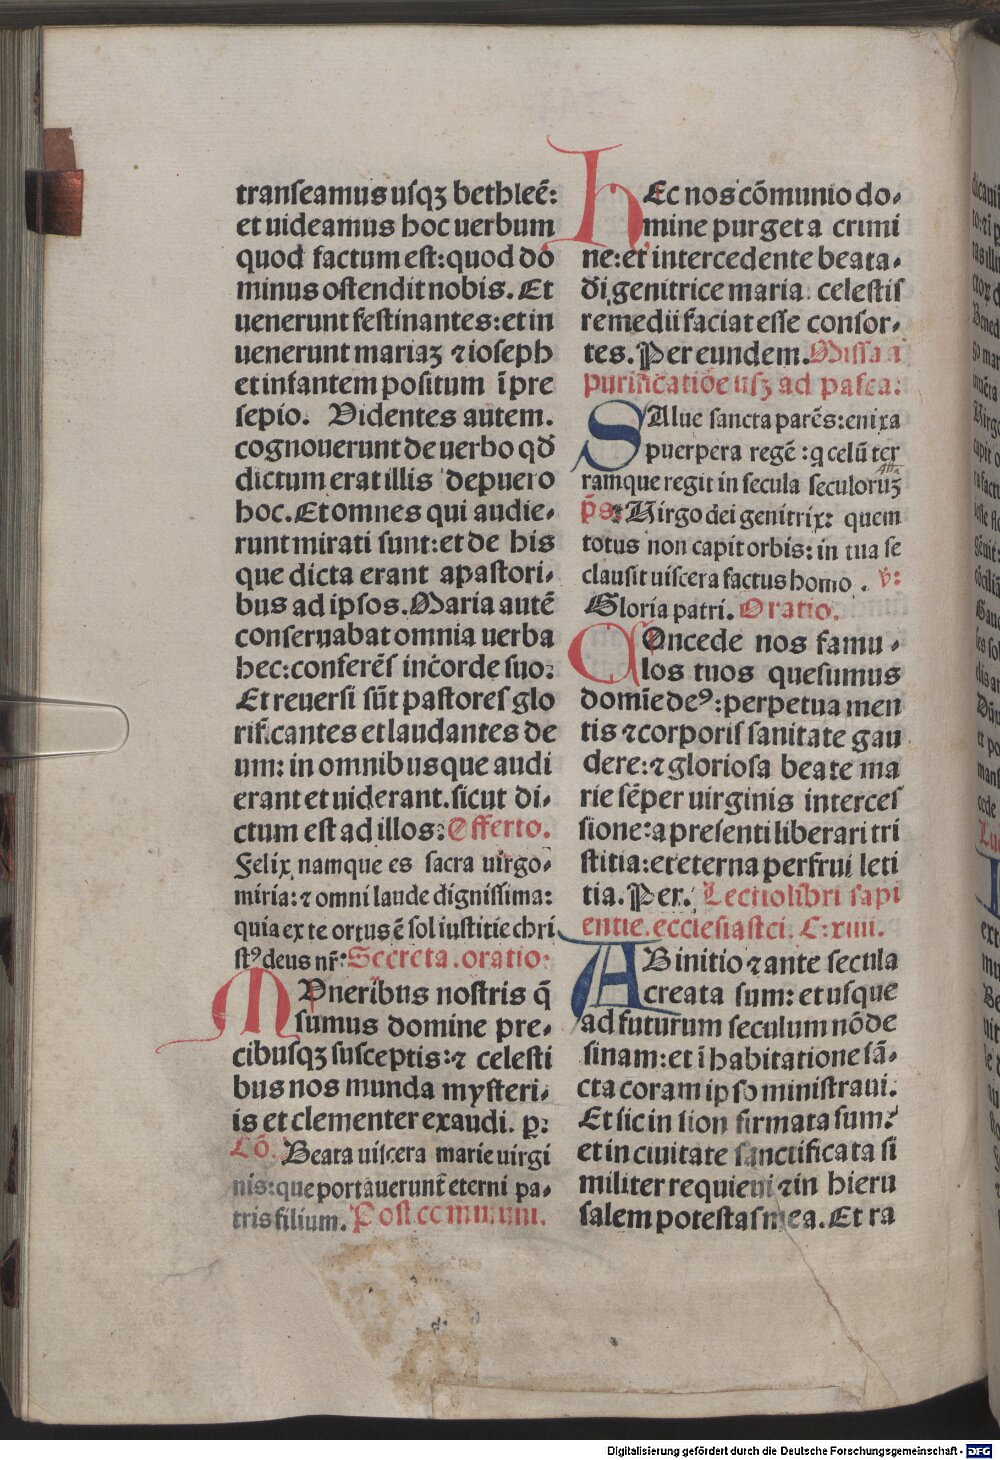 tranſeamus uſqꝫ bethleē:
et uideamus hoc uerbum
quod factum eſt: quod do
minus oſtendit nobis. Et
uenerunt feſtinantes: et in
uenerunt mariaꝫ ⁊ ioſeph
et infantem poſitum ī pre
ſepio. Videntes autem.
cognouerunt de uerbo qđ
dictum erat illis de puero
hoc. Et omnes qui audie-
runt mirati ſunt: et de his
que dicta erant a paſtori-
bus ad ipſos. Maria autē
conſeruabat omnia uerba
hec: conferēſ in corde ſuo:
Et reuerſi ſūt paſtoreſ glo
rificantes et laudantes de
um: in omnibus que audi
erant et uiderant. ſicut di-
ctum eſt ad illos: Offerto.
Felix namque es ſacra uirgo-
miria: ⁊ omni laude digniſſima:
quia ex te ortus ē ſol iuſtitie chri
ſtꝰ deus nr̄: Secreta. oratio:
MVneribus noſtris q̄
ſumus domine pre-
cibuſqꝫ ſuſceptis: ⁊ celeſti
bus nos munda myſteri-
is et clementer exaudi. p:
Cō. Beata uiſcera marie uirgi
nis: que portauerunt eterni pa-
tris filium. Poſt communi.
hEc nos cōmunio do-
mine purget a crimi
ne: et intercedente beata-
di genitrice maria celeſtiſ
remedii faciat eſſe conſor-
tes. Per eundem. Miſſa a
purificatiōe uſꝫ ad paſca:
SAlue ſancta parēs: enixa
puerpera regē: q celū ter
ramque regit in ſecula ſeculoruꝫ
p̄s: Virgo dei genitrix: quem
totus non capit orbis: in tua ſe
clauſit uiſcera factus homo. v:
Gloria patri. Oratio.
COncede nos famu-
los tuos queſumus
domīe deꝰ: perpetua men
tis ⁊ corporiſ ſanitate gau
dere: ⁊ glorioſa beate ma
rie ſēper uirginis interceſ
ſione: a preſenti liberari tri
ſtitia: et eterna perfrui leti
tia. Per. Lectio libri ſapi
entie. eccleſiaſtci. C: xiiii.
AB initio ⁊ ante ſecula
creata ſum: et uſque
ad futurum ſeculum nō de
ſinam: et ī habitatione ſā-
cta coram ipſo miniſtraui.
Et ſic in ſion firmata ſum:
et in ciuitate ſanctificata ſi
militer requieui ⁊ in hieru
ſalem poteſtaſ mea. Et ra
Digitalisierung gefördert durch die Deutsche Forschungsgemeinschaft - DFG